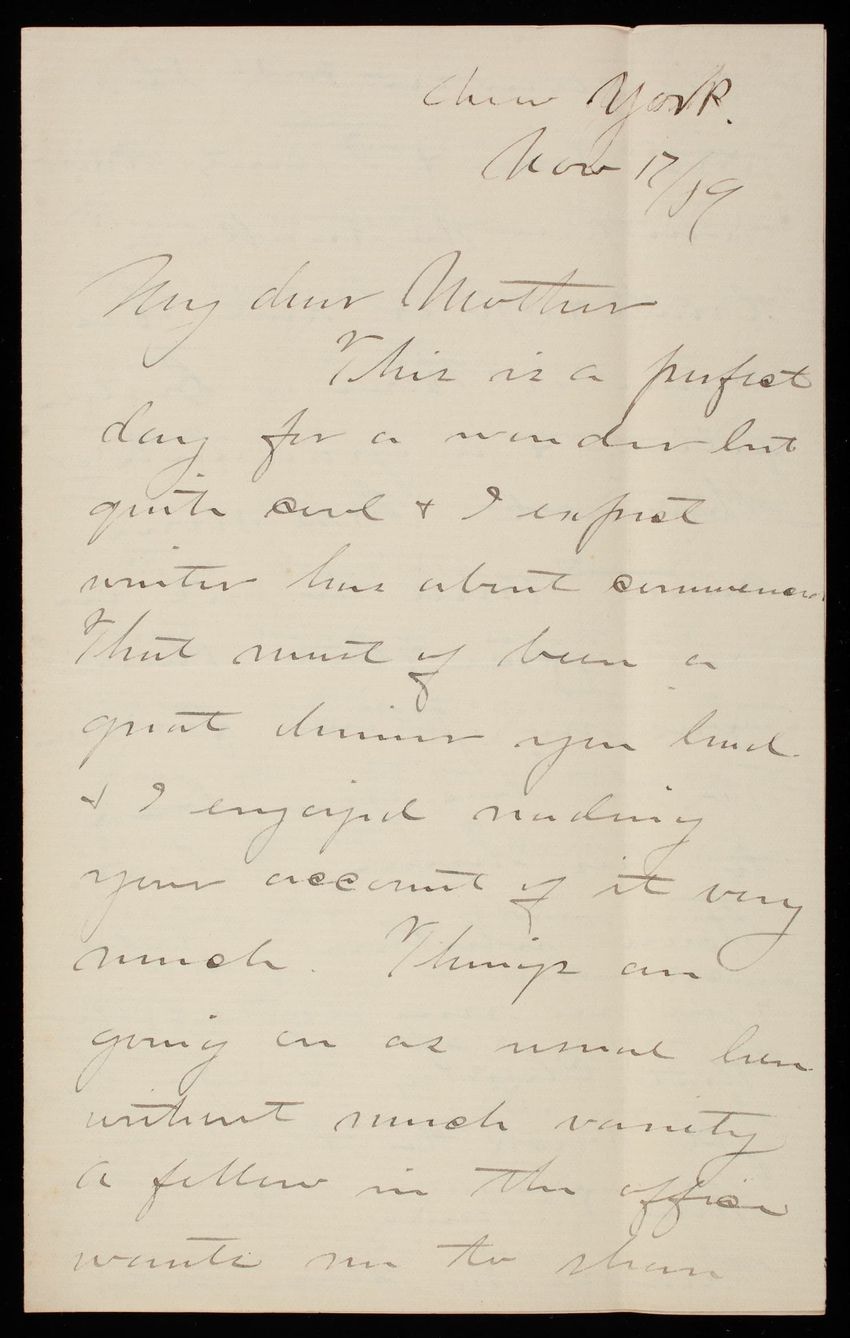 New York.
Nov 17/89
My dear Mother
This is a perfect
day for a wonder but
quite cool & I expect
winter has about commenced
That must of been a
great dinner you had
& I enjoyed reading
your account of it very
much. Things are
going on as usual here
without much variety
A fellow in the office
wants me to share